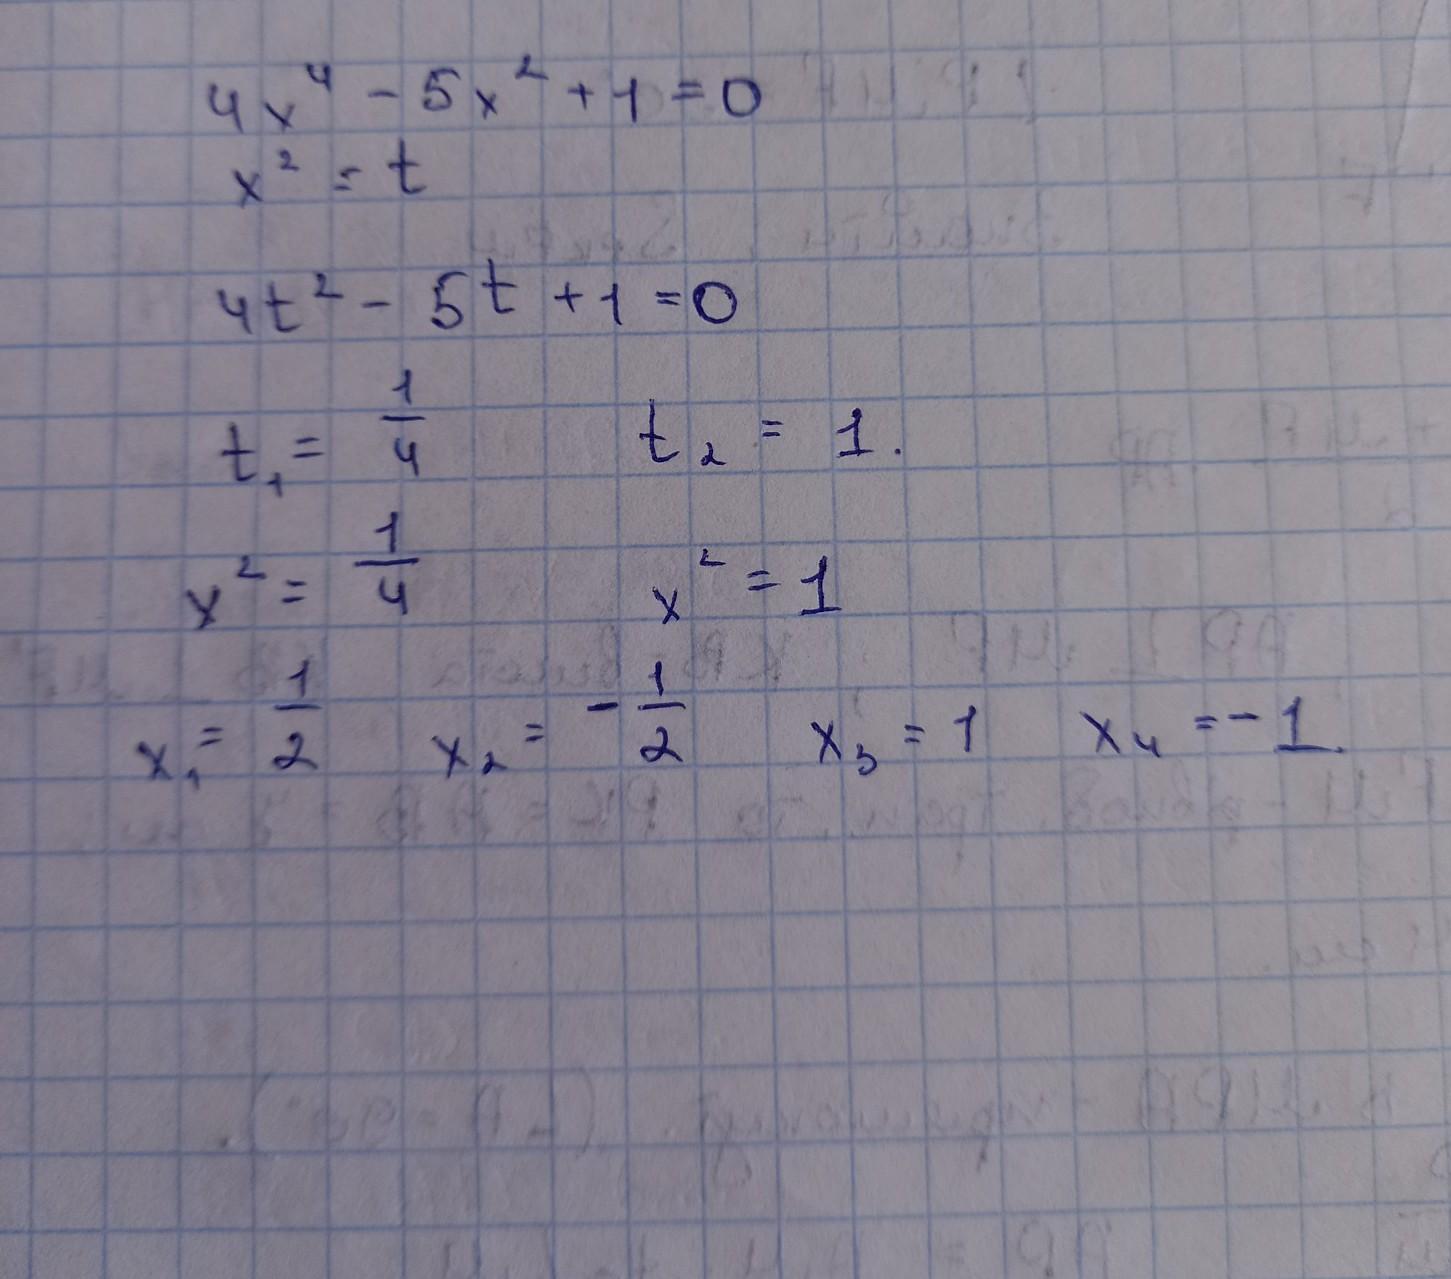 4x⁴ - 5x² + 1 = 0
x² = t
4t² - 5t + 1 = 0
t₁ = 1/4 t₂ = 1.
x² = 1/4 x² = 1
x₁ = 1/2 x₂ = - 1/2 x₃ = 1 x₄ = - 1.